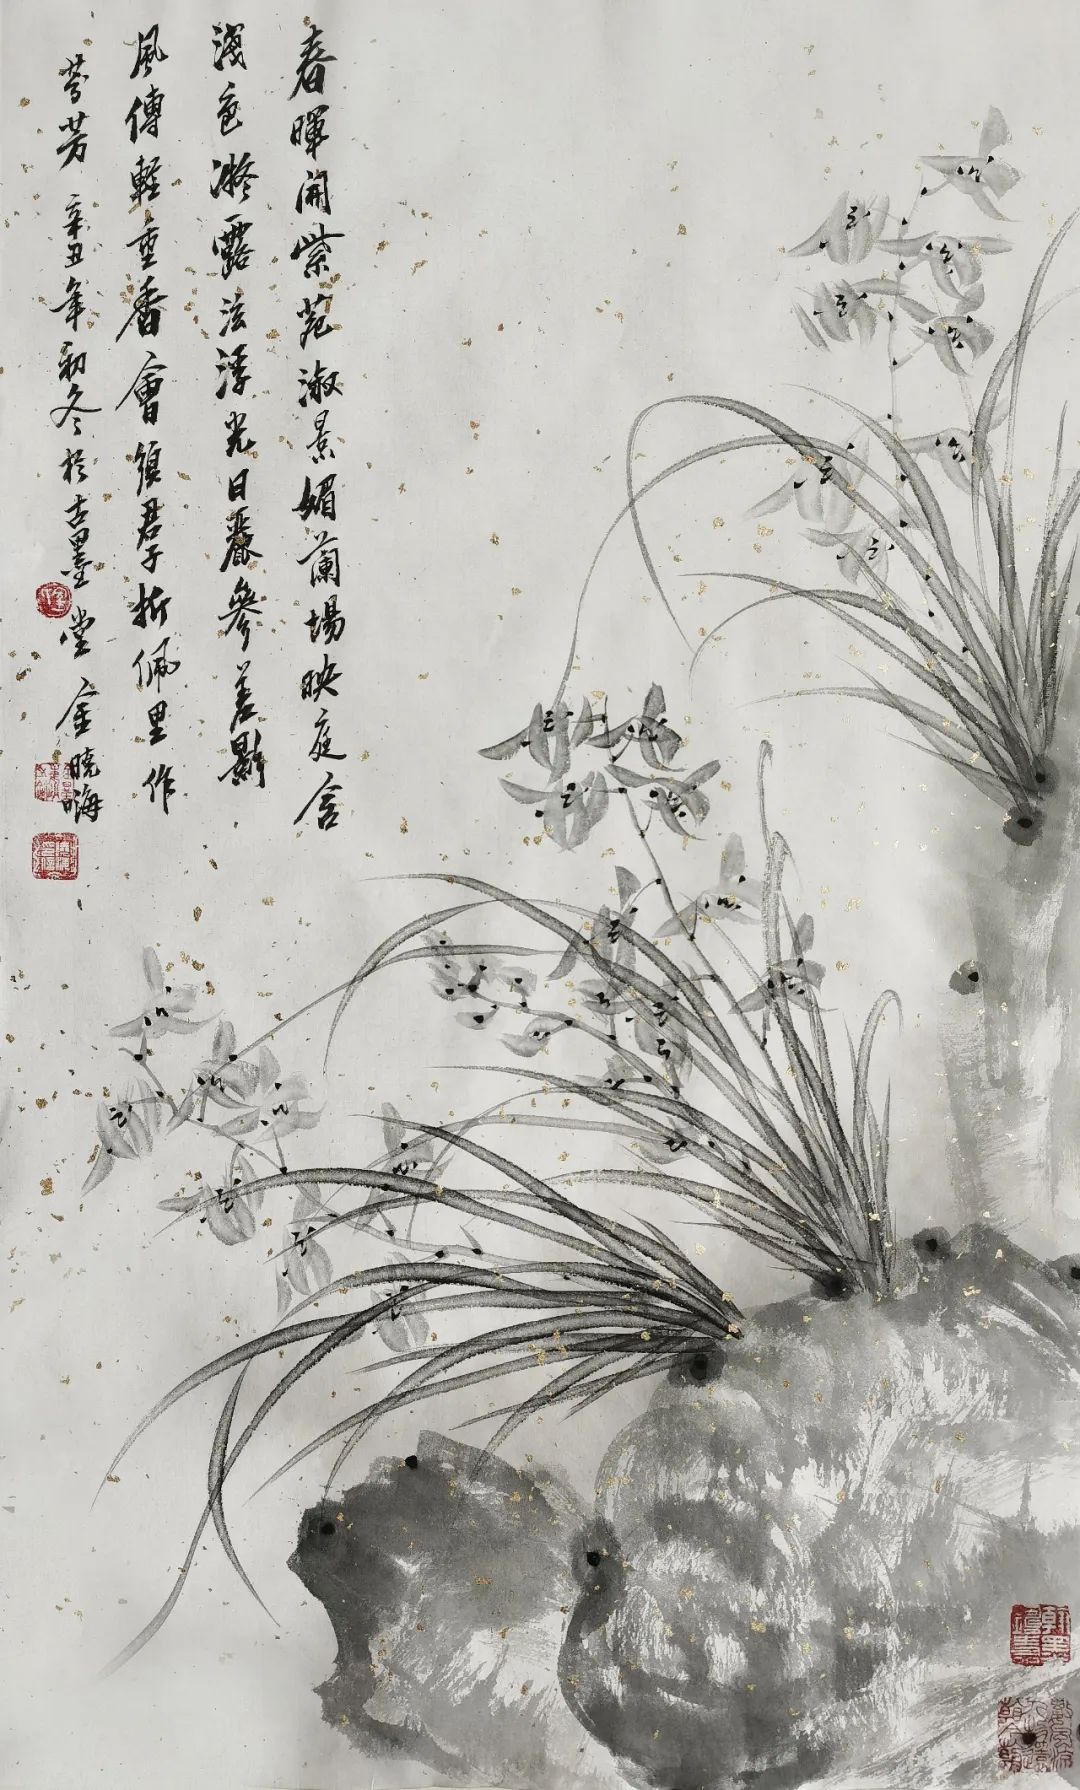 春暉開紫苑淑景媚蘭場映庭含
淺色凝露泫浮光日麗參差影
風傳輕重香會須君子折佩里作
芬芳 辛丑年初冬於古墨堂 金曉海